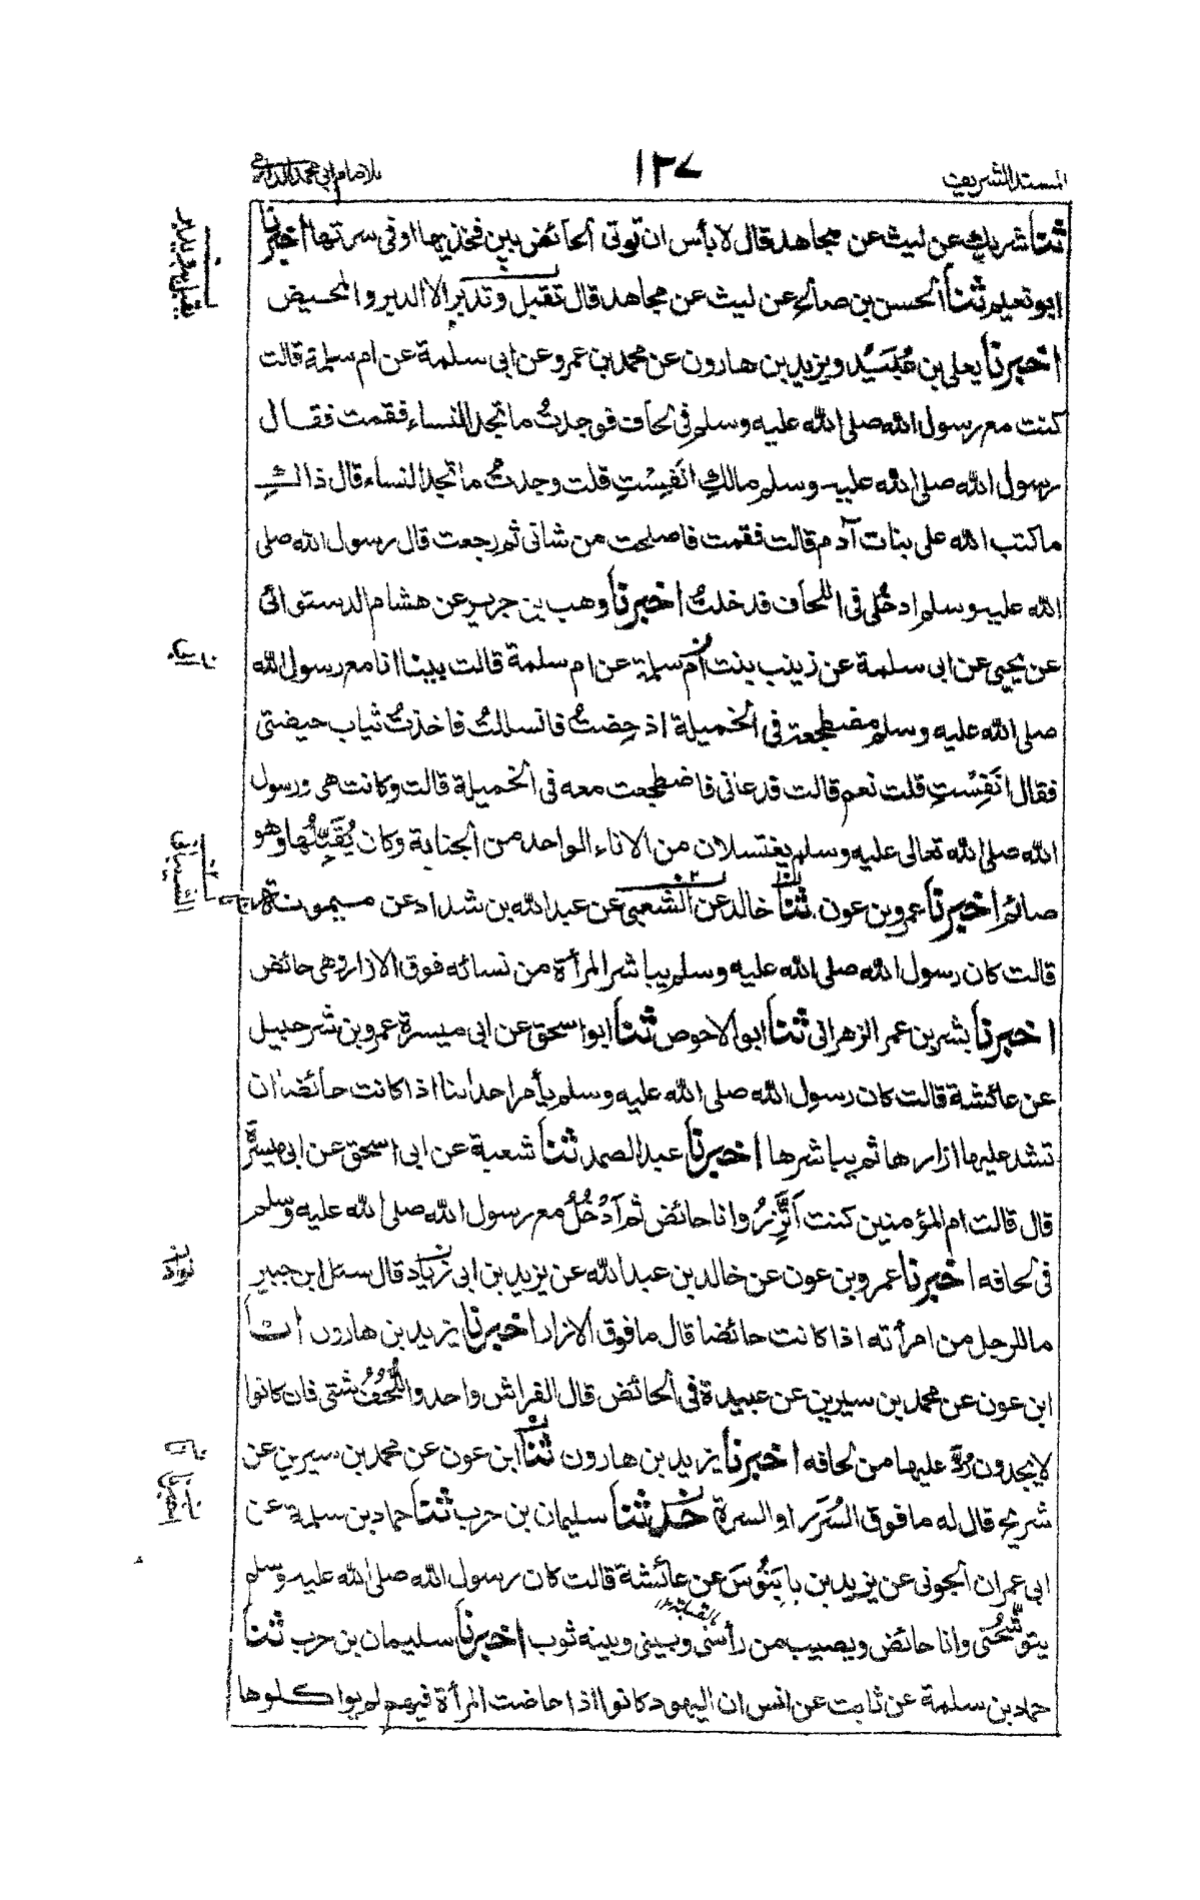 المسند الشريف ١٣٧ للامام ابى محمد الدارمى
ثنا شريك عن ليث عن مجاهد قال لا بأس ان توتى الحائض بين فخذيها او فى سرتها اخبرنا
ابو نعيم ثنا الحسن بن صالح عن ليث عن مجاهد قال تقبل و تدبر الا الدبر و المحيض
اخبرنا يعلى بن عُبَيد و يزيد بن هارون عن محمد بن عمرو عن ابى سلمة عن ام سلمة قالت
كنت مع رسول الله صلى الله عليه وسلم فى لحاف فوجدتُ ما تجد النساء فقمت فقال
رسول الله صلى الله عليه وسلم مالكِ انَفِسْتِ قلت وجدتُ ما تجد النساء قال ذالكِ
ما كتب الله على بنات آدم قالت فقمت فاصلحت من شانى ثم رجعت قال رسول الله صلى
الله عليه وسلم ادخُلى فى اللحاف فدخلتُ اخبرنا وهب بن جرير عن هشام الدستوائى
عن يحيى عن ابى سلمة عن زينب بنت ام سلمة عن ام سلمة قالت بينا انا مع رسول الله
صلى الله عليه وسلم مضطجعة فى الخميلة اذ حِضتُ فانسللتُ فاخذتُ ثياب حيضتى
فقال انَفِسْتِ قلت نعم قالت فدعانى فاضطجعت معه فى الخميلة قالت وكانت هى ورسول
الله صلى الله تعالى عليه وسلم يغتسلان من الاناء الواحد من الجنابة وكان يُقَبِّلُها وهو
صائم اخبرنا عمرو بن عون ثنا خالد عن الشعبى عن عبد الله بن شداد عن ميمونة
قالت كان رسول الله صلى الله عليه وسلم يباشر المرأة من نسائه فوق الازار وهى حائض
اخبرنا بشر بن عمر الزهرانى ثنا ابو الاحوص ثنا ابو اسحق عن ابى ميسرة عمرو بن شرحبيل
عن عائشة قالت كان رسول الله صلى الله عليه وسلم يأمر احدانا اذا كانت حائضا ان
تشد عليها ازارها ثم يباشرها اخبرنا عبد الصمد ثنا شعبة عن ابى اسحق عن ابى ميسرة
قال قالت ام المؤمنين كنت اَتَّزِرُ وانا حائض ثم اَدْخُلُ مع رسول الله صلى الله عليه وسلم
فى لحافه اخبرنا عمرو بن عون عن خالد بن عبد الله عن يزيد بن ابى زياد قال سئل ابن جبير
ما للرجل من امرأته اذا كانت حائضا قال ما فوق الازار اخبرنا يزيد بن هارون انا
ابن عون عن محمد بن سيرين عن عبيدة فى الحائض قال الفراش واحد واللُّحُفُ شتى فان كانوا
لا يجدون رُدَّ عليها من لحافه اخبرنا يزيد بن هارون ثنا ابن عون عن محمد بن سيرين عن
شريح قال له ما فوق السُرَر او السرة حدثنا سليمان بن حرب ثنا حماد بن سلمة عن
ابى عمران الجونى عن يزيد بن بابَنُوسَ عن عائشة قالت كان رسول الله صلى الله عليه وسلم
يتوشّحنى وانا حائض ويصيب من رأسى وبينى وبينه ثوب اخبرنا سليمان بن حرب ثنا
حماد بن سلمة عن ثابت عن انس ان اليهود كانوا اذا حاضت المرأة فيهم لم يواكلوها
الشيبانى